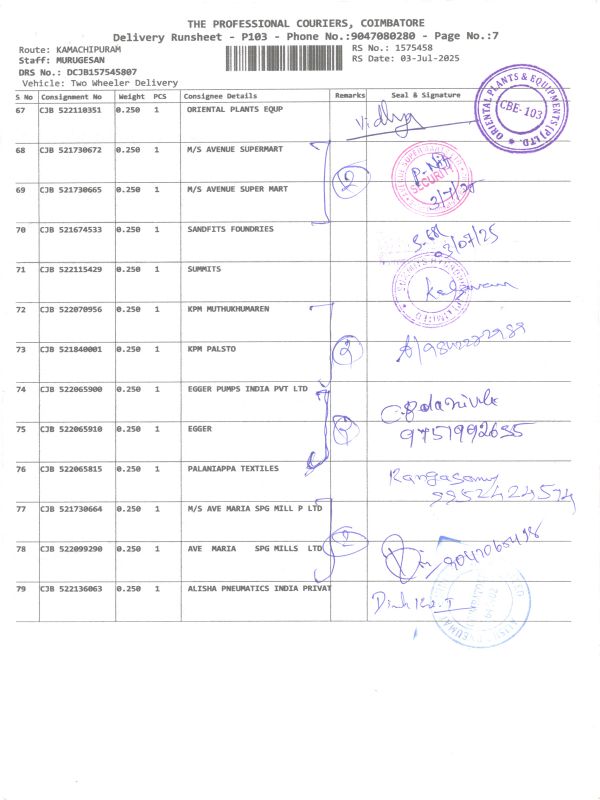 THE PROFESSIONAL COURIERS, COIMBATORE
Delivery Runsheet - P103 - Phone No.:9047080280 - Page No.:7
Route: KAMACHIPURAM RS No.: 1575458
Staff: MURUGESAN RS Date: 03-Jul-2025
DRS No.: DCJB157545807
Vehicle: Two Wheeler Delivery
S No Consignment No Weight PCS Consignee Details Remarks Seal & Signature
67 CJB 522110351 0.250 1 ORIENTAL PLANTS EQUP Vidhya
ORIENTAL PLANTS & EQUIPMENTS (P) LTD.
CBE-103
68 CJB 521730672 0.250 1 M/S AVENUE SUPERMART
SECURITY
69 CJB 521730665 0.250 1 M/S AVENUE SUPER MART 2 3/7/25
70 CJB 521674533 0.250 1 SANDFITS FOUNDRIES
03/07/25
71 CJB 522115429 0.250 1 SUMMITS
72 CJB 522070956 0.250 1 KPM MUTHUKHUMAREN
73 CJB 521840001 0.250 1 KPM PALSTO 2
74 CJB 522065900 0.250 1 EGGER PUMPS INDIA PVT LTD
75 CJB 522065910 0.250 1 EGGER 9751992635
76 CJB 522065815 0.250 1 PALANIAPPA TEXTILES Rangasamy
9952424574
77 CJB 521730664 0.250 1 M/S AVE MARIA SPG MILL P LTD
78 CJB 522099290 0.250 1 AVE MARIA SPG MILLS LTD
79 CJB 522136063 0.250 1 ALISHA PNEUMATICS INDIA PRIVAT